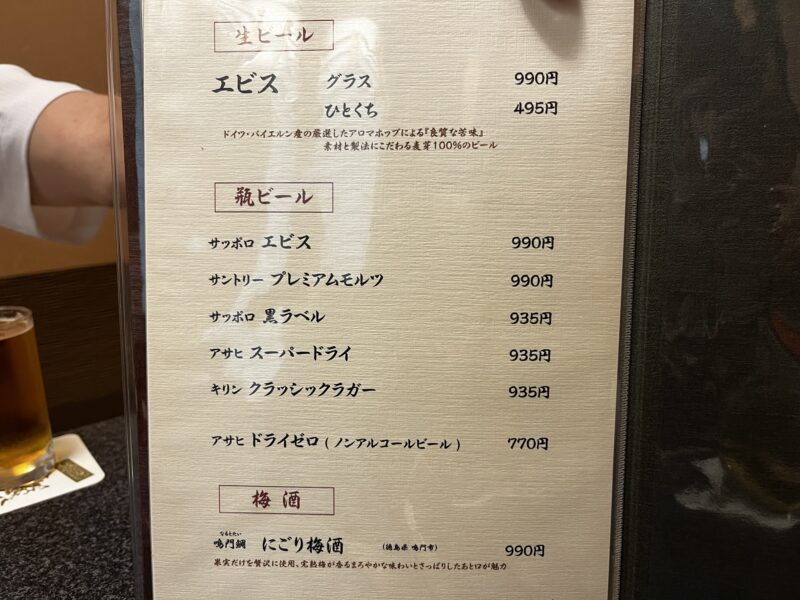 生ビール
エビス グラス 990円
ひとくち 495円
ドイツ・バイエルン産の厳選したアロマホップによる『良質な苦味』
素材と製法にこだわる麦芽100%のビール
瓶ビール
サッポロ エビス 990円
サントリー プレミアムモルツ 990円
サッポロ 黒ラベル 935円
アサヒ スーパードライ 935円
キリン クラッシックラガー 935円
アサヒ ドライゼロ ( ノンアルコールビール ) 770円
梅酒
なるとたい
鳴門鯛 にごり梅酒 (徳島県 鳴門市) 990円
果実だけを贅沢に使用、完熟梅が香るまろやかな味わいとさっぱりしたあと口が魅力